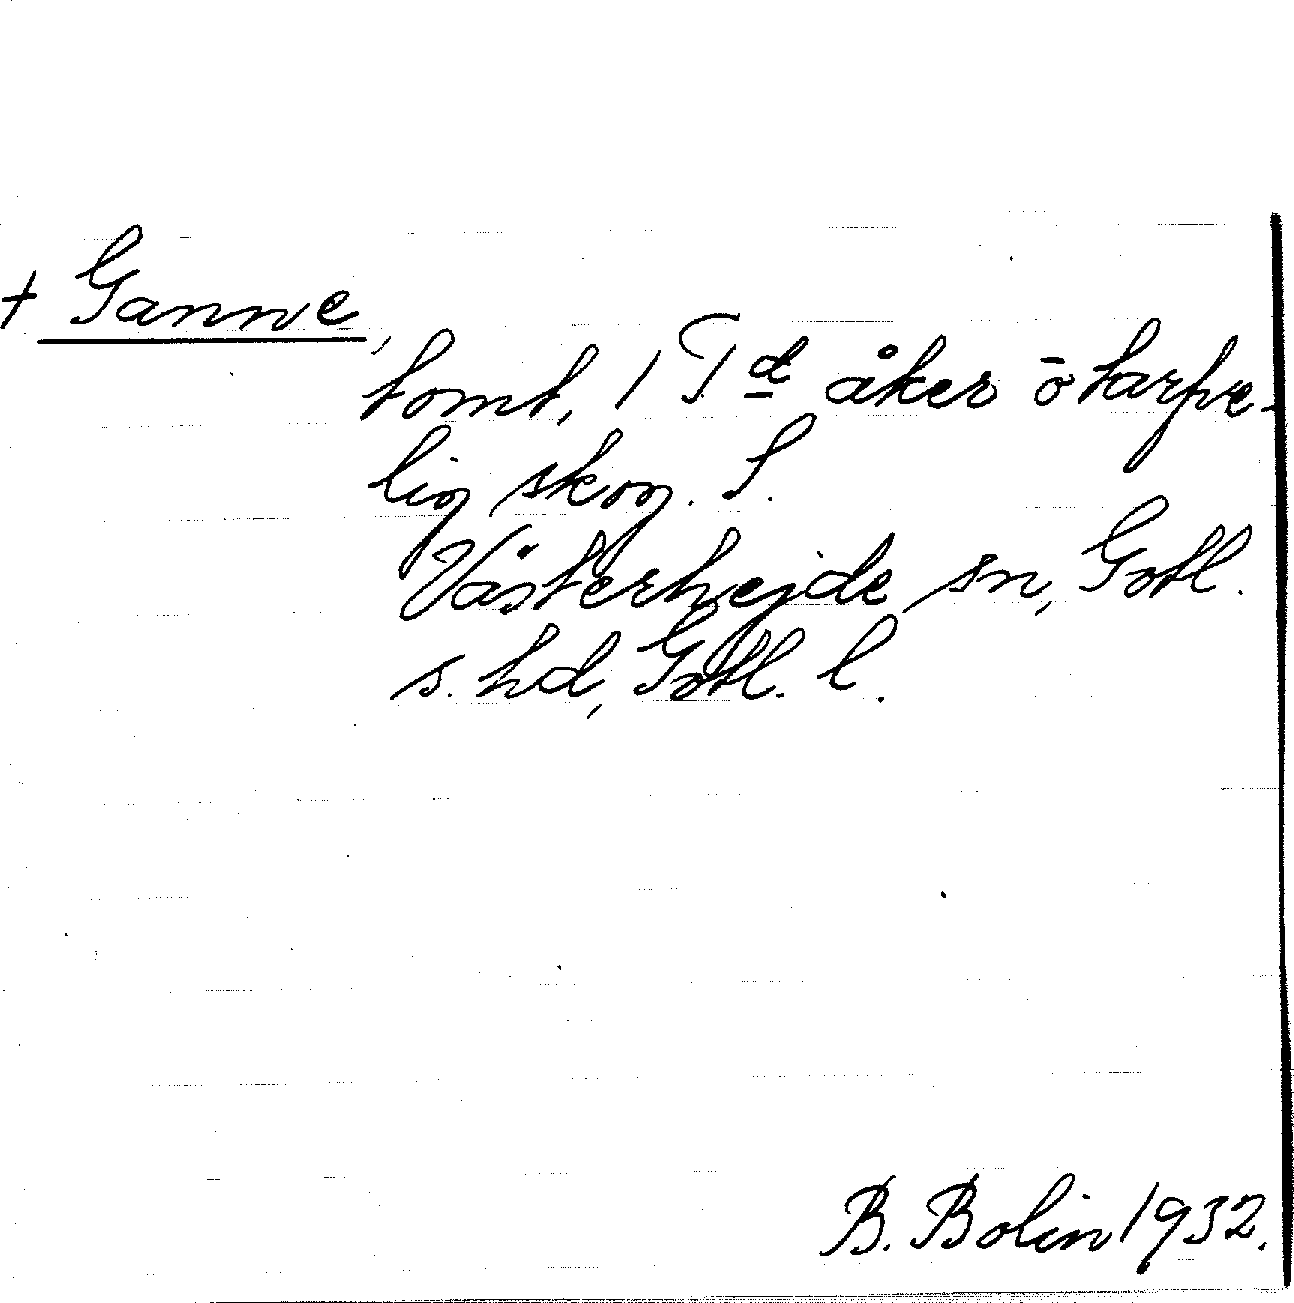 + Ganne,
tomt, 1 Td åker ō tarfve-
lig skog. S.
Västerhejde sn, Gotl.
s. hd, Gotl. l.
B. Bolin 1932.